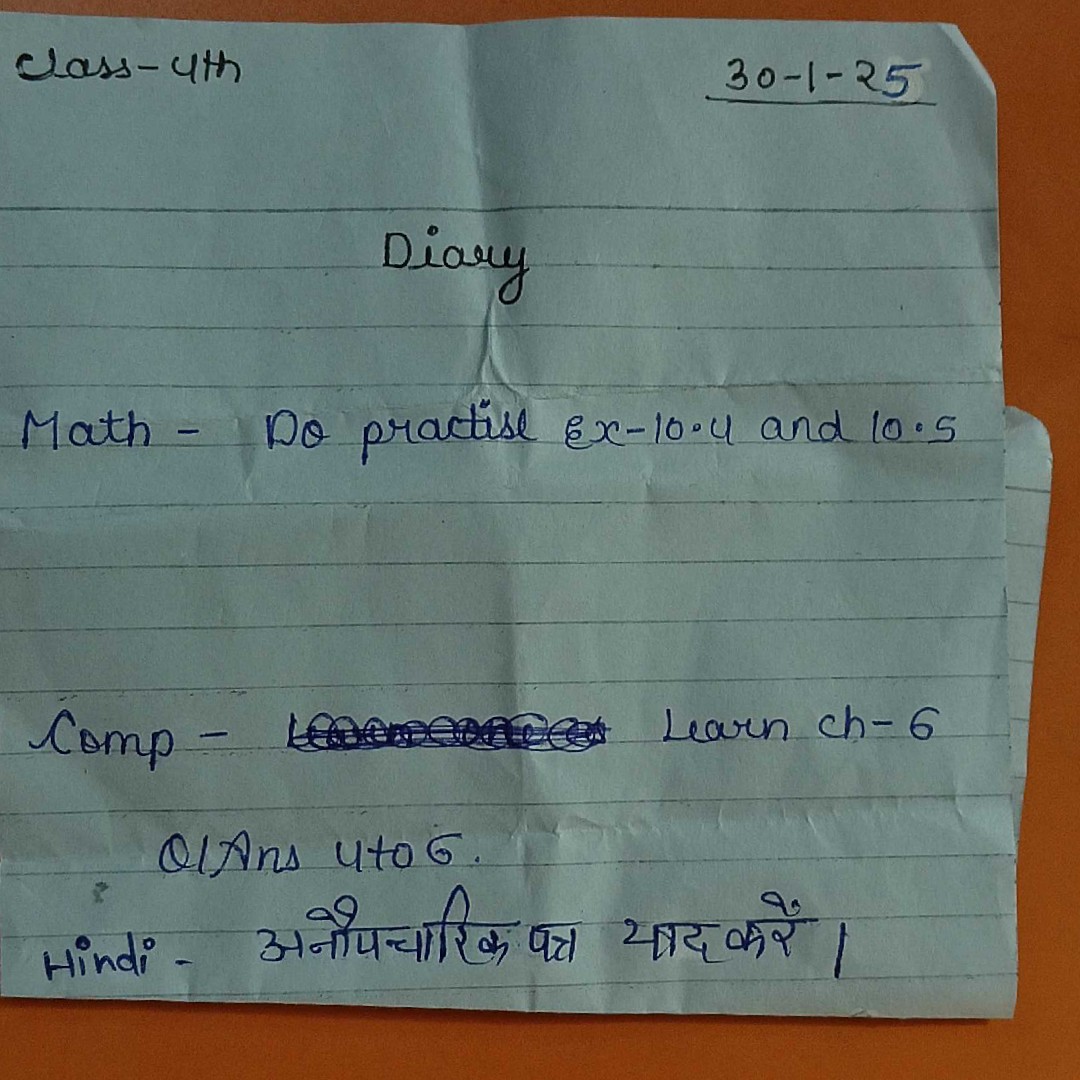 Class-4th 30-1-25
Diary
Math - Do practise Ex-10.4 and 10.5
Comp - Learn ch-6
Q/Ans 4 to 6.
Hindi - अनौपचारिक पत्र याद करें ।